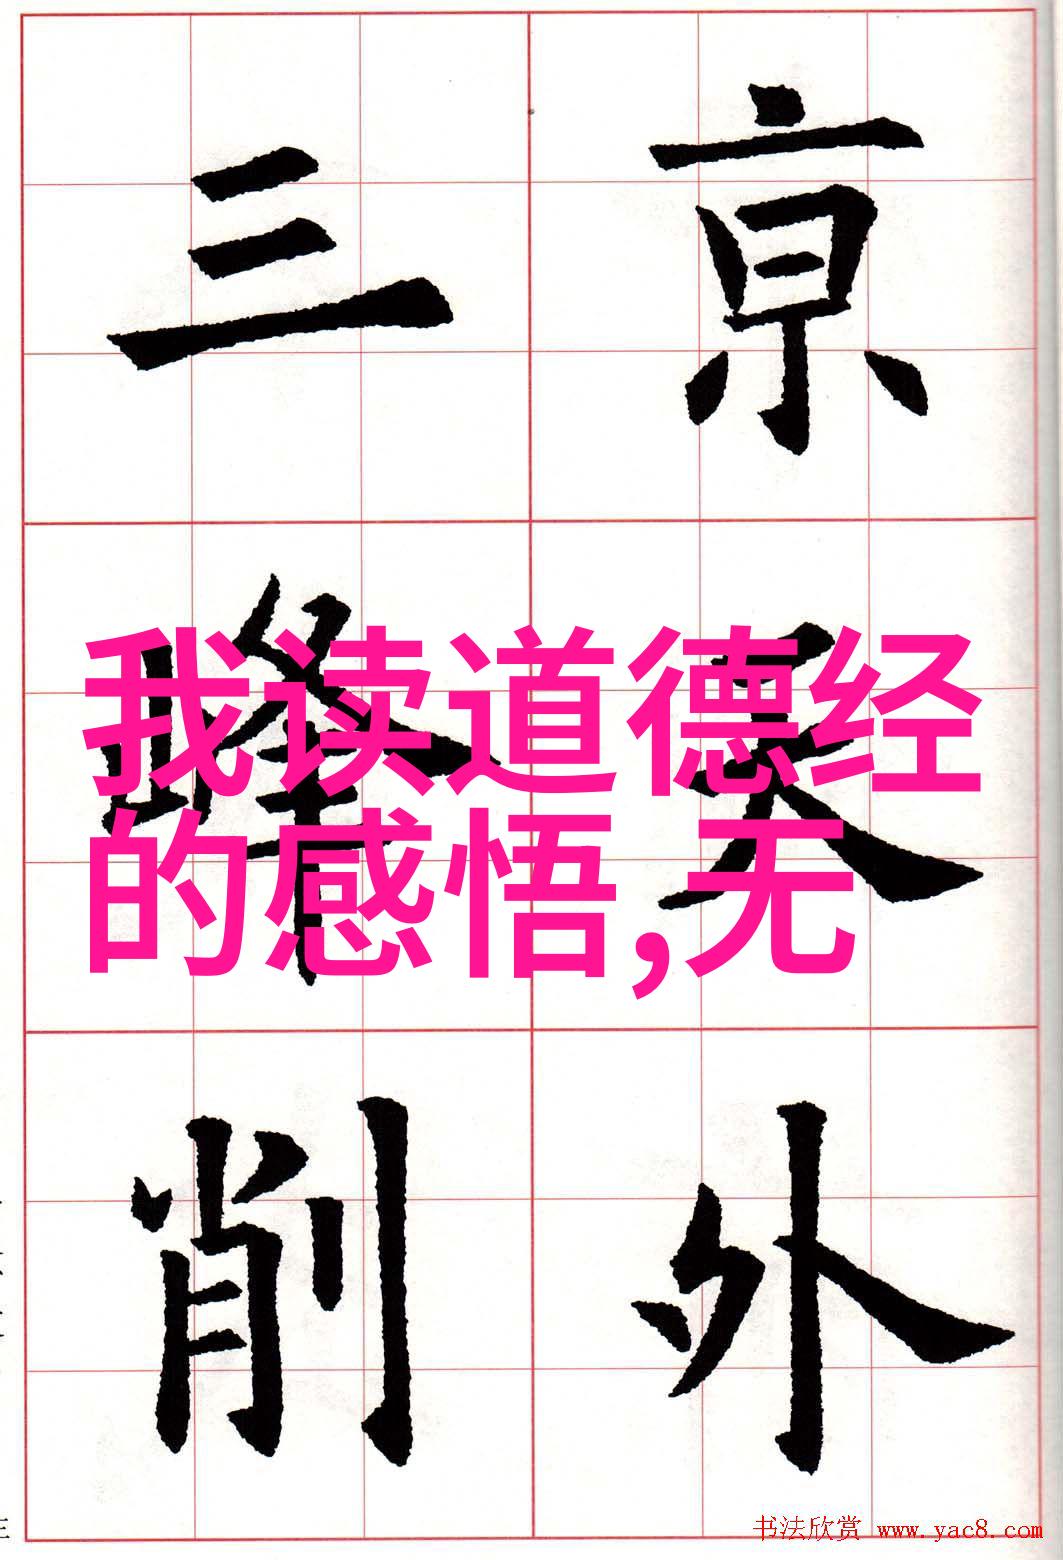 亰天外
三峰削
我读道德经
的感悟,无
书法欣赏 www.yac8.com